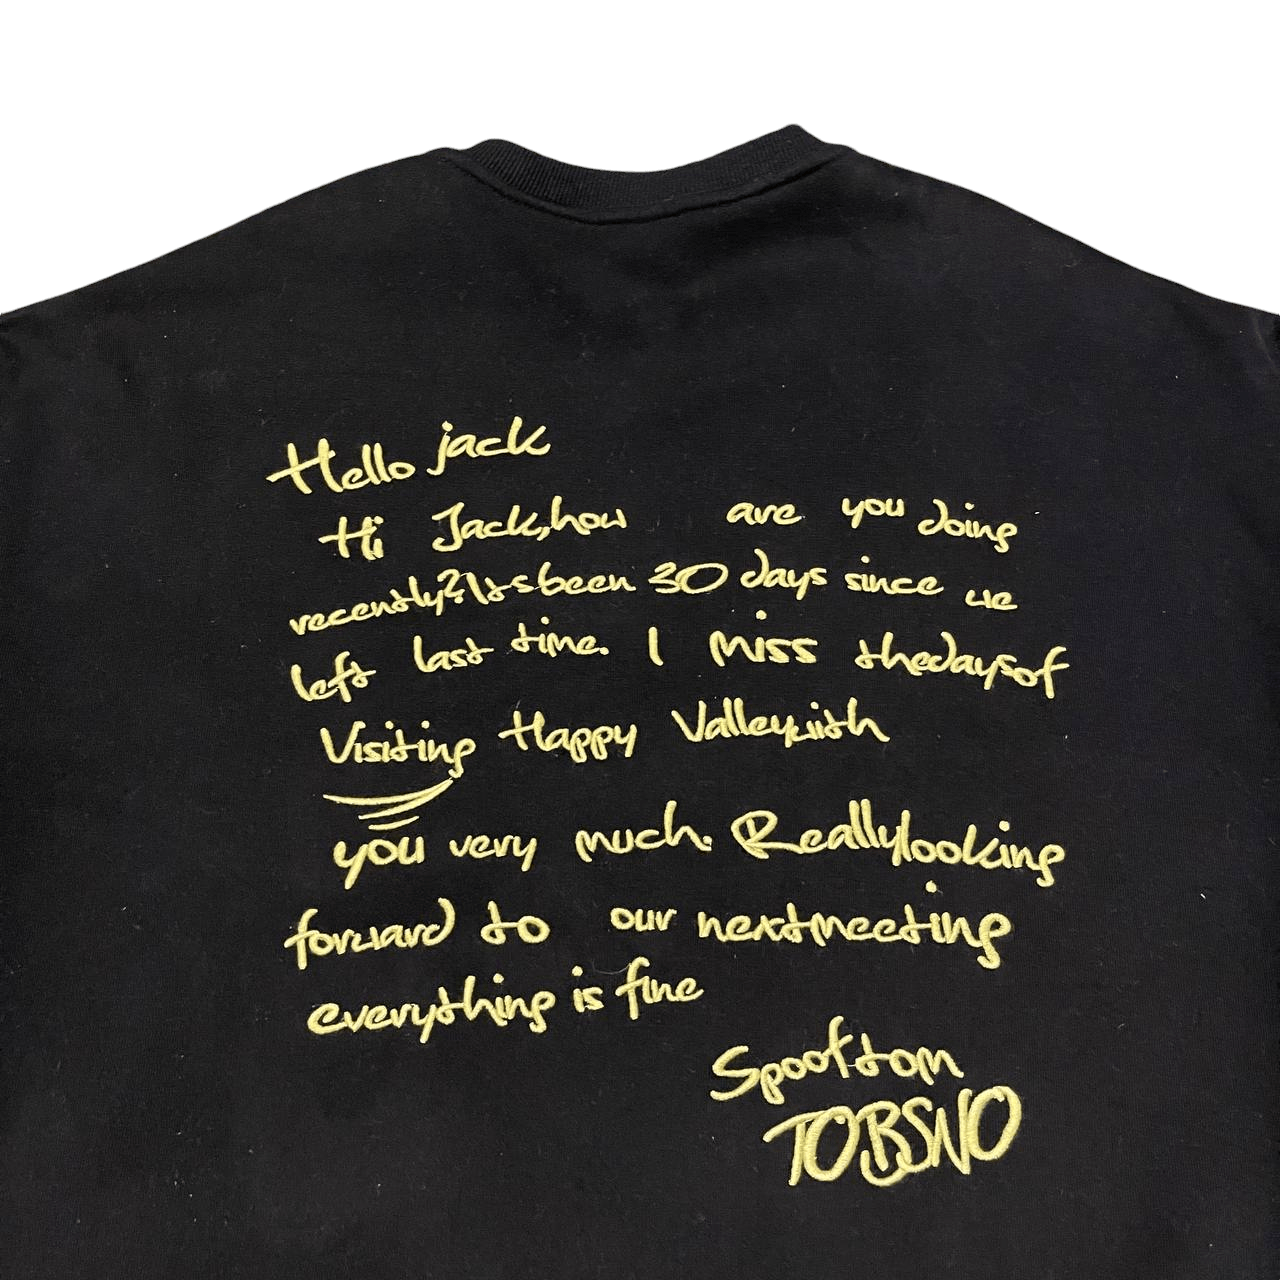 Hello jack
Hi Jack,how are you doing
recently?Itsbeen 30 days since we
left last time. I miss thedaysof
Visiting Happy Valleywith
you very much. Reallylooking
forward to our nextmeeting
everything is fine
Spooftom
TOBSNO